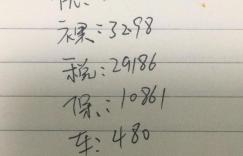 裸:3298
税:29186
保:10861
车:480